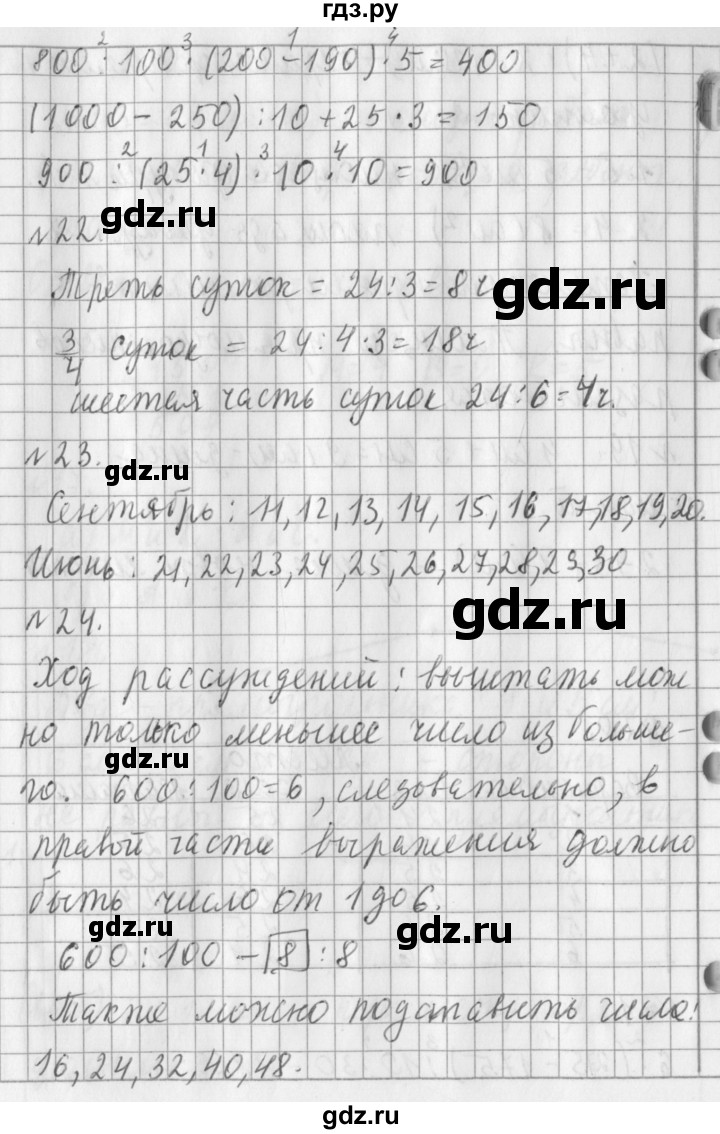 гдз.ру
800 : 100 · (200 - 190) · 5 = 400
2 3 1 4
(1000 - 250) : 10 + 25 · 3 = 150
900 : (25 · 4) · 10 · 10 = 900
2 1 3 4
gdz.ru
№22.
Треть суток = 24 : 3 = 8 ч
gdz.ru
3/4 суток = 24 : 4 · 3 = 18ч
шестая часть суток 24 : 6 = 4ч.
№23.
gdz.ru
Сентябрь : 11, 12, 13, 14, 15, 16, 17, 18, 19, 20.
Июнь : 21, 22, 23, 24, 25, 26, 27, 28, 29, 30
gdz.ru
№24.
Ход рассуждений : вычитать мож
но только меньшее число из больше-
gdz.ru
го. 600 : 100 = 6, следовательно, в
правой части выражения должно
быть число от 1 до 6.
gdz.ru
gdz.ru
600 : 100 - 8 : 8
Также можно подставить числа:
16, 24, 32, 40, 48.
gdz.ru